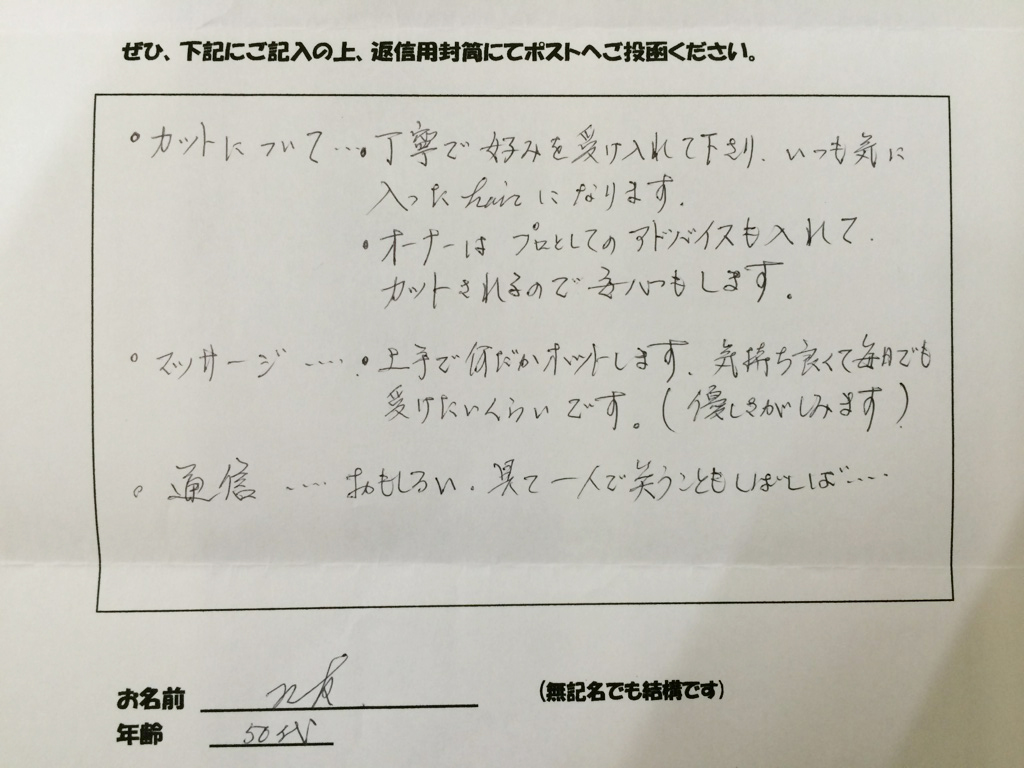 ぜひ、下記にご記入の上、返信用封筒にてポストへご投函ください。
・カットについて…・丁寧で好みを受け入れて下さり、いつも気に
入ったhairになります。
・オーナーは プロとしてのアドバイスも入れて、
カットされるので もします。
・マッサージ……・上手で何だかホットします、気持ち良くて毎日でも
受けたいくらいです。(優しさがしみます)
・通信……おもしろい、見て一人で笑うこともしばしば……
お名前
(無記名でも結構です)
年齢 50代